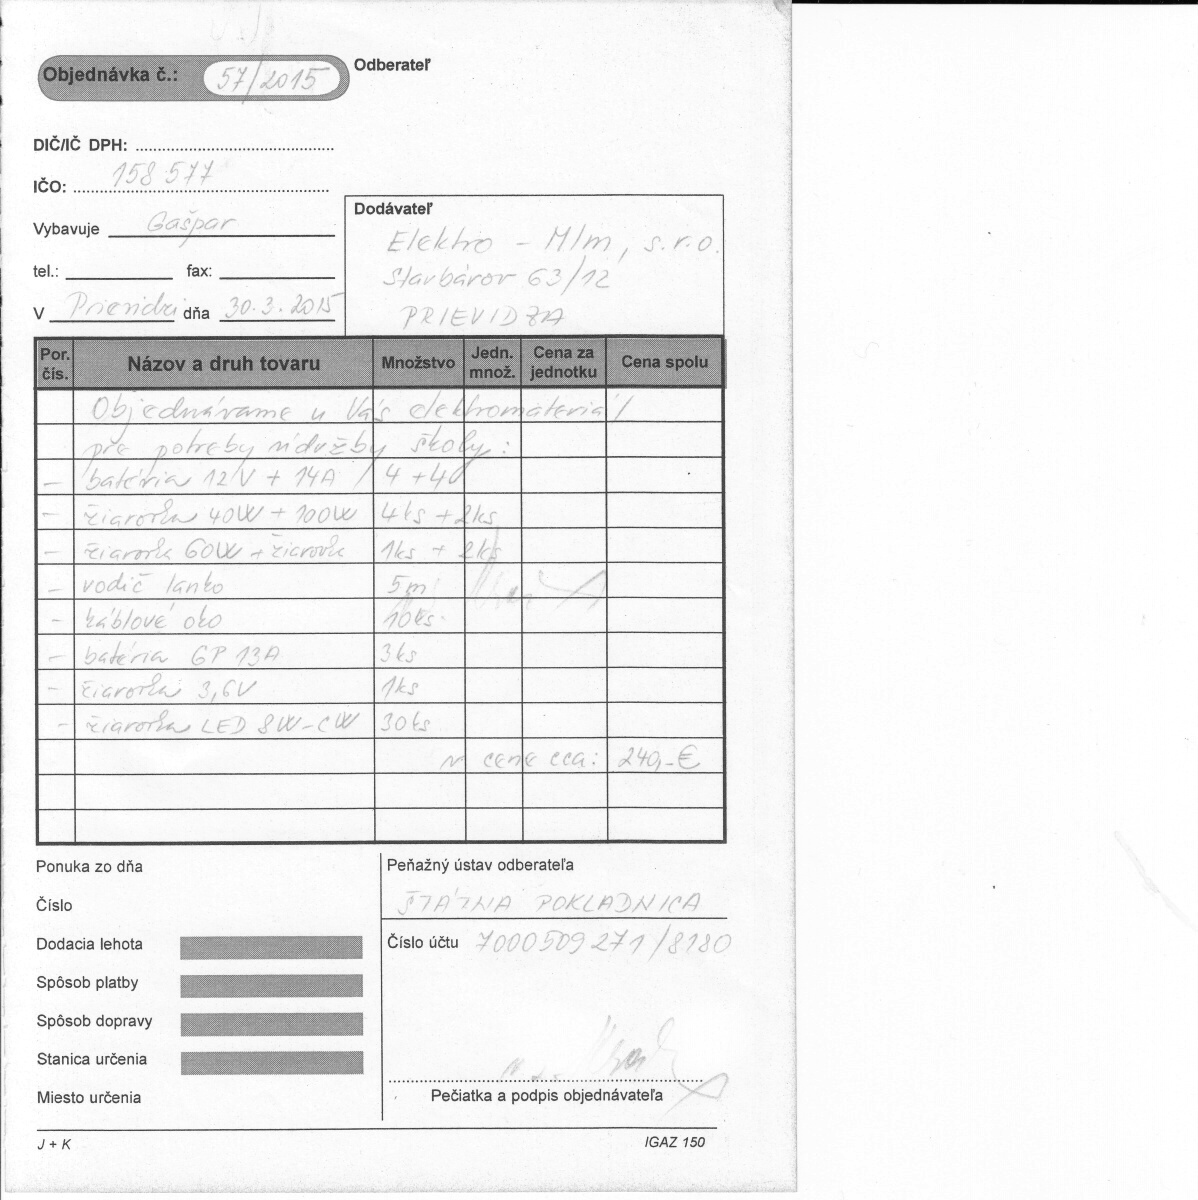 Objednávka č.: 57/2015
Odberateľ
DIČ/IČ DPH:
IČO: 158 577
Vybavuje Gašpar
tel.: fax:
V Prievidzi dňa 30.3.2015
Dodávateľ
Elektro - M/m, s.r.o.
Stavbárov 63/12
PRIEVIDZA
Por. čís. Názov a druh tovaru Množstvo Jedn. množ. Cena za jednotku Cena spolu
Objednávame u Vás elektromateriál
pre potreby údržby školy:
- batéria 12V + 14A 4 + 4
- žiarovka 40W + 100W 4ks + 2ks
- žiarovk 60W + žiarovka 1ks + 2ks
- vodič lanko 5m
- káblové oko 10ks
- batéria GP 13A 3ks
- žiarovka 3,6V 1ks
- žiarovka LED 8W-CW 30ks
v cene cca: 240,-€
Ponuka zo dňa
Číslo
Dodacia lehota
Spôsob platby
Spôsob dopravy
Stanica určenia
Miesto určenia
Peňažný ústav odberateľa
ŠTÁTNA POKLADNICA
Číslo účtu 7000509271/8180
Pečiatka a podpis objednávateľa
J + K
IGAZ 150